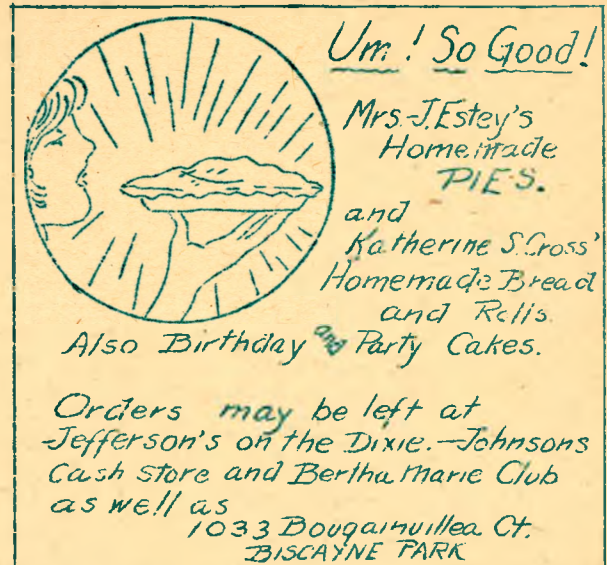 Um! So Good!
Mrs. J. Estey's
Homemade
PIES.
and
Katherine S. Cross'
Homemade Bread
and Rolls
Also Birthday and Party Cakes.
Orders may be left at
Jefferson's on the Dixie.—Johnsons
Cash Store and Bertha Marie Club
as well as
1033 Bougainvillea Ct.
BISCAYNE PARK